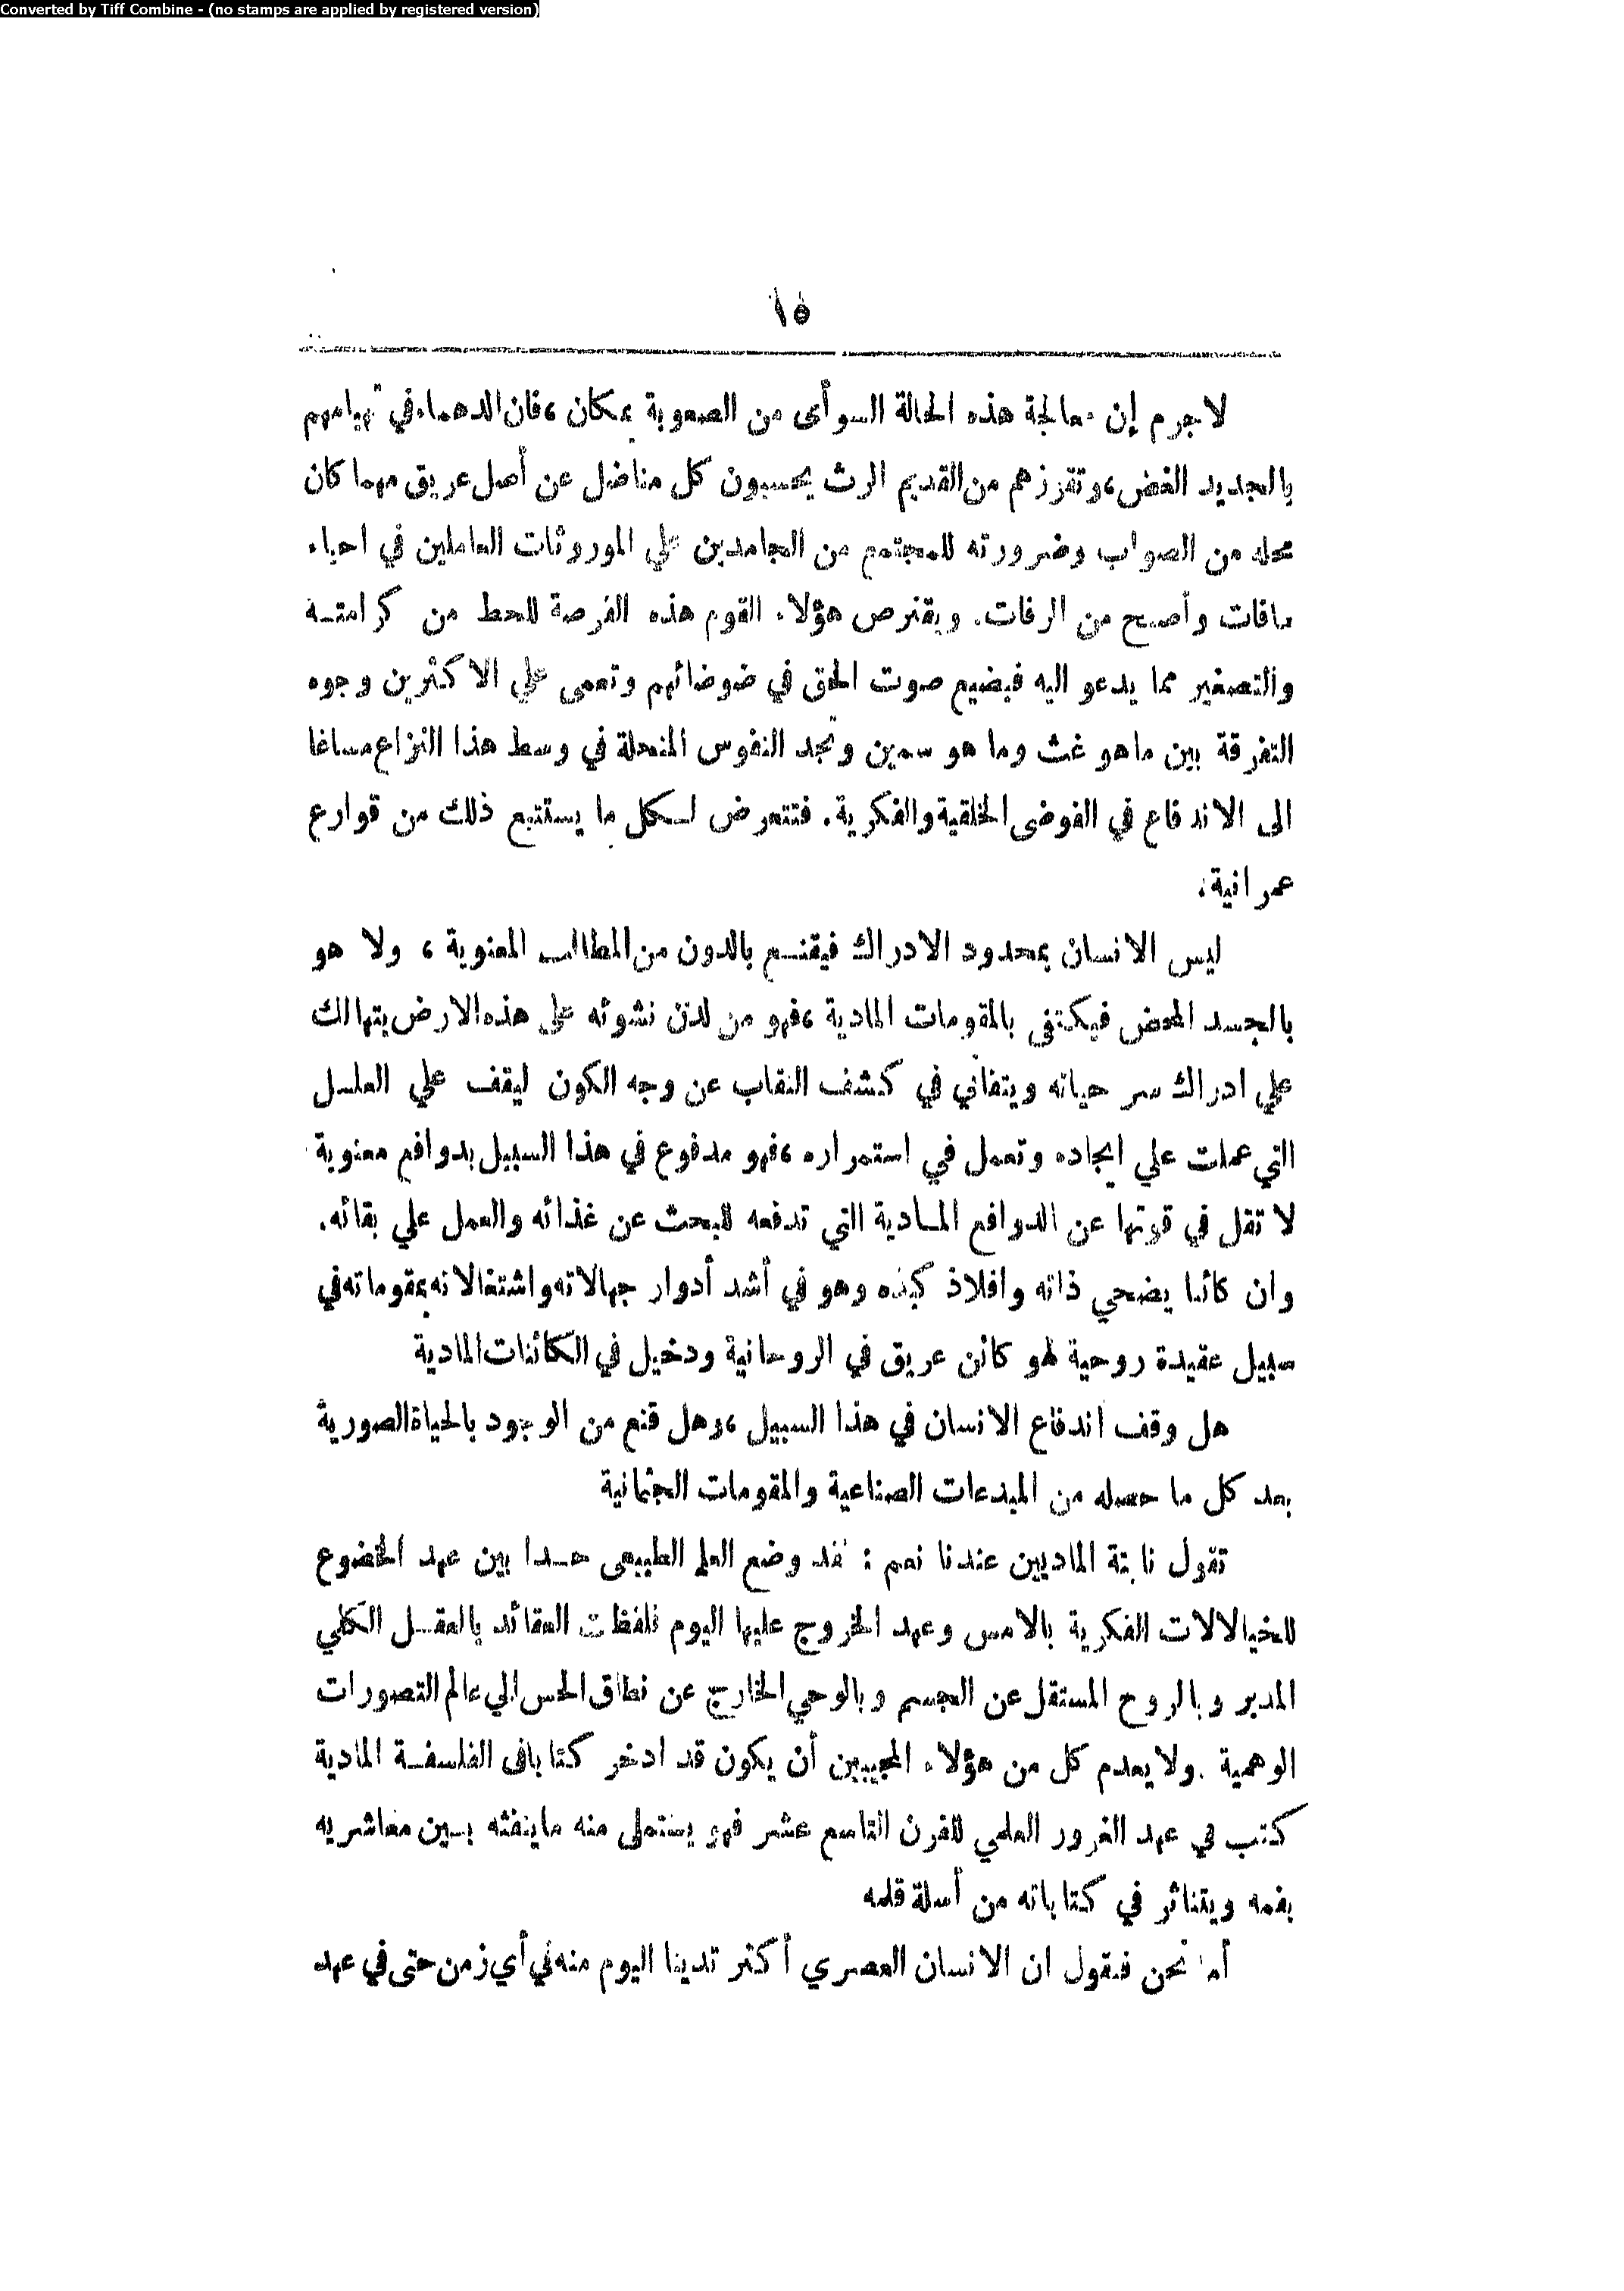 Converted by Tiff Combine - (no stamps are applied by registered version)
١٥
لاجرم إن معالجة هذه الحالة السوأى من الصعوبة بمكان ،فان الدهماء في تهيامهم
بالجديد الغض،وتقززهم من القديم الرث يحسبون كل مناضل عن أصل عريق مهما كان
محله من الصواب وضرورته للمجتمع من الجامدين علي الموروثات العاملين في احياء
مافات وأصبح من الرفات. ويقترص هؤلاء القوم هذه الفرصة للحط من كرامته
والتصغير مما يدعو اليه فيضيع صوت الحق في ضوضائهم وتعمى علي الاكثرين وجوه
التفرقة بين ماهو غث وما هو سمين وتجد النفوس المنحلة في وسط هذا النزاع مساغا
الى الاندفاع في الفوضى الخلقية والفكرية. فتتعرض لكل ما يستتبع ذلك من قوارع
عمرانية.
ليس الانسان بمحدود الادراك فيقنع بالدون من المطالب المعنوية ، ولا هو
بالجسد المحض فيكتفى بالمقومات المادية ،فهو من لدن نشوئه على هذه الارض يتهالك
علي ادراك سر حياته ويتفاني في كشف النقاب عن وجه الكون ليقف علي العلل
التي عملت علي ايجاده وتعمل في استمراره ،فهو مدفوع في هذا السبيل بدوافع معنوية
لا تقل في قوتها عن الدوافع المادية التي تدفعه للبحث عن غذائه والعمل علي بقائه.
وان كائنا يضحي ذاته وافلاذ كبده وهو في أشد أدوار جهالاته واشتغالاته بمقوماته في
سبيل عقيدة روحية لهو كائن عريق في الروحانية ودخيل في الكائنات المادية
هل وقف اندفاع الانسان في هذا السبيل ،وهل قنع من الوجود بالحياة الصورية
بعد كل ما حصله من المبدعات الصناعية والمقومات الجثمانية
تقول نابتة الماديين عندنا نعم : لقد وضع العلم الطبيعى حدا بين عهد الخضوع
للخيالالات الفكرية بالامس وعهد الخروج عليها اليوم فلفظت العقائد بالعقل الكلي
المدبر وبالروح المستقل عن الجسم وبالوحي الخارج عن نطاق الحس الي عالم التصورات
الوهمية .ولايعدم كل من هؤلاء المجيبين أن يكون قد ادخر كتابافى الفلسفة المادية
كتب في عهد الغرور العلمي للقرن التاسع عشر فهو يستملى منه ماينفثه بين معاشريه
بفمه ويتناثر في كتاباته من أسلة قلمه
أما نحن فنقول ان الانسان العصري أكثر تدينا اليوم منه في أي زمن حتى في عهد